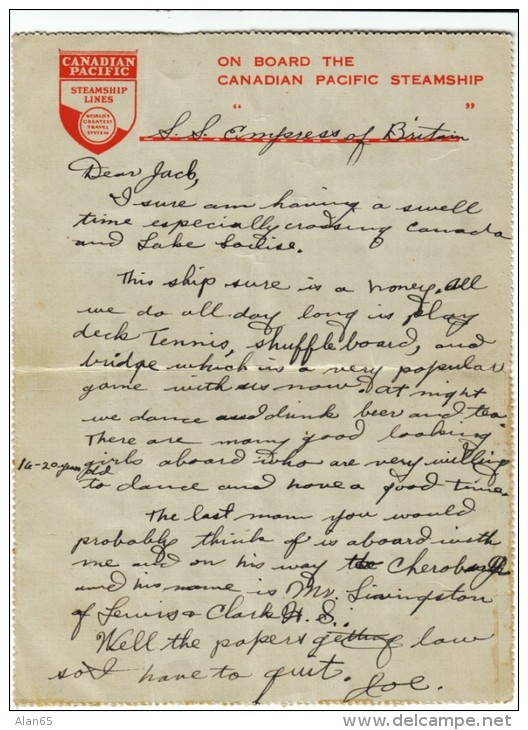 CANADIAN
PACIFIC
STEAMSHIP
LINES
WORLD'S
GREATEST
TRAVEL
SYSTEM
ON BOARD THE
CANADIAN PACIFIC STEAMSHIP
" "
S. S. Empress of Britain
Dear Jack,
I sure am having a swell
time especially crossing Canada
and Lake
This ship sure is a honey. All
we do all day long is play
deck Tennis, shuffle board, and
bridge which is a very popular
game with us now. At night
we dance and drink beer and tea.
There are many good looking
16-20 years old
girls aboard who are very willing
to dance and have a good time.
The last man you would
probably think of is aboard with
me and on his way to Cherobourg
and his name is Mr. Livingston
of Lewis & Clark H. S.
Well the papers getting low
so I have to quit. Joe.
Alan65
delcampe.net